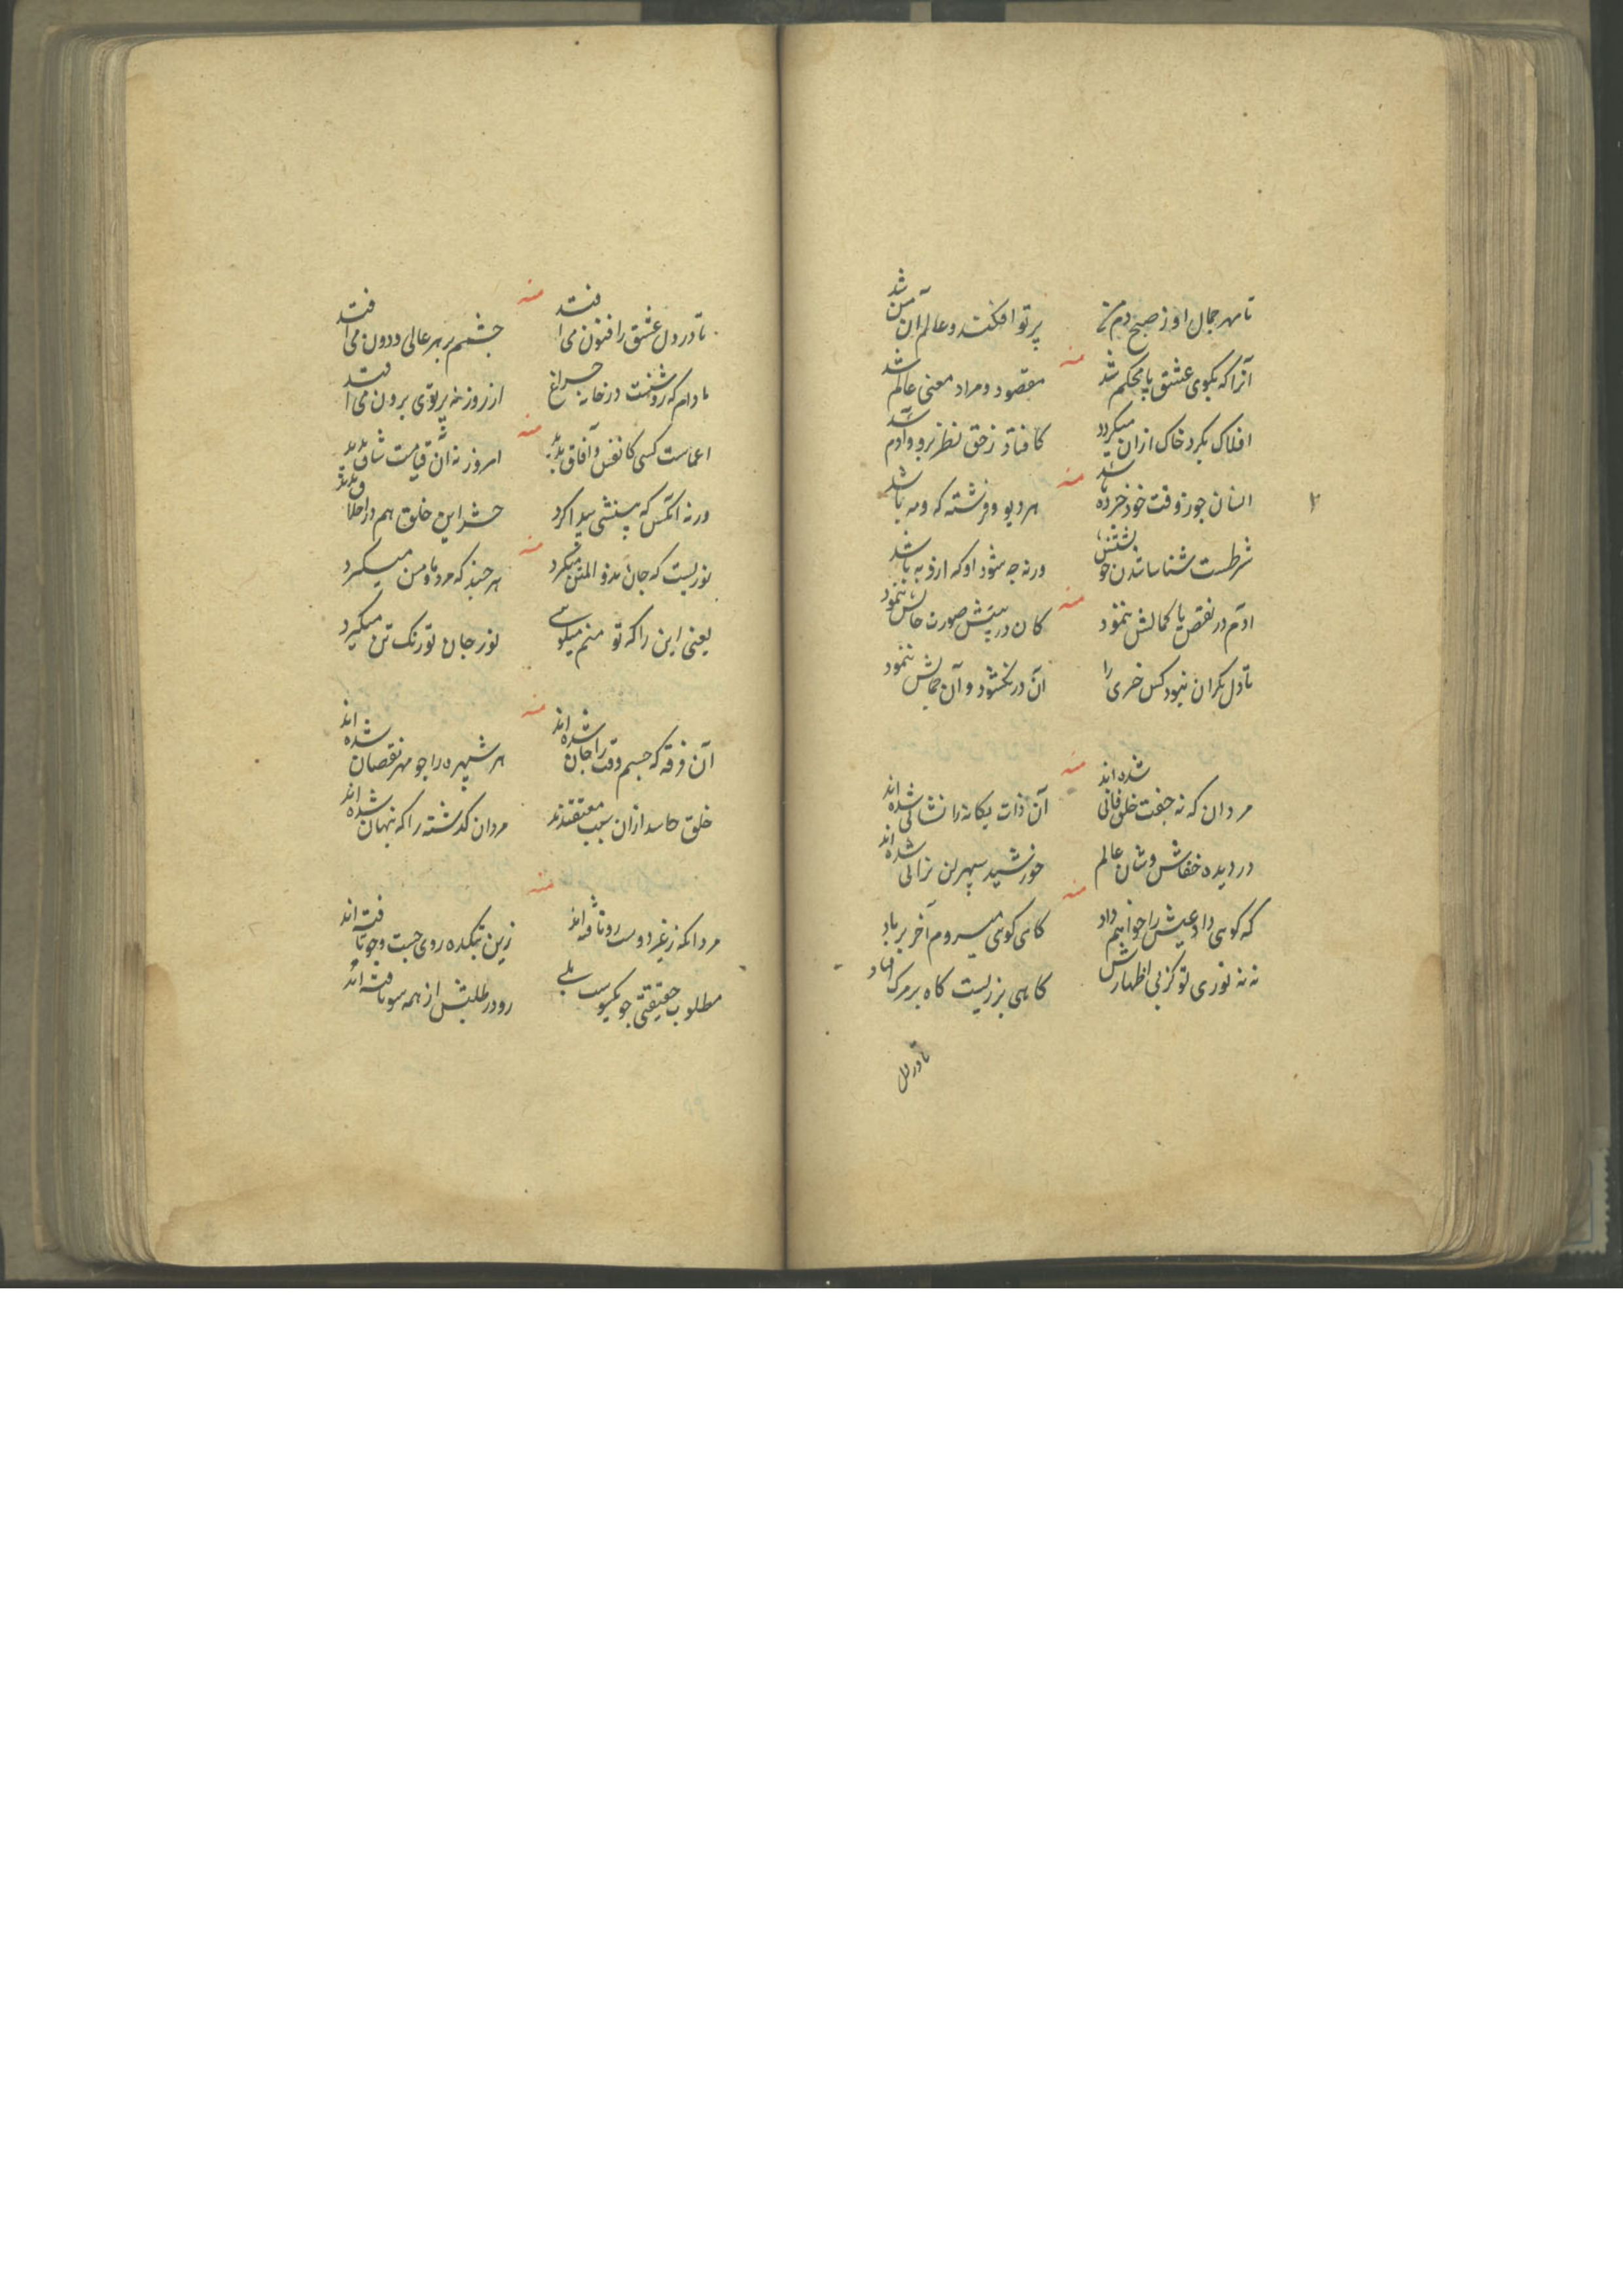 تا مهر جمال او ز صبح دم زد پرتو افکند و عالم آن من شد
منه
آنرا که بکوی عشق پا محکم شد مقصود و مراد معنی عالم شد
افلاک بکرد خاک ازان میکردد کافتاد ز حق نظر برو و آدم شد
منه
انسان جو ز وقت خود خرده باشد هر دیو و فرشته که ومه باشد
شرطست شناساشدن خویشتنش ورنه چه شود او که ازو به باشد
منه
آدم در نقص یا کمالش ننمود کان در پیش صورت حالش ننمود
تا دل نکران نبود کس خری را آن در نکشود و آن جمالش ننمود
منه
مردان که نه جفت خلق فانی شده اند آن ذات یکانه را نشانی شده اند
در دیده خفاش وشان عالم خورشید سپهر لن ترانی شده اند
منه
که کوهی داد عیش را خواهم داد کاهی کوهی میروم آخر بر باد
نه نه نوری تو کز پی اظهارش کاهی بر زیست کاه بر مرک افتاد
تا در دل
منه
تا در دل عشق را فنون می افتد چشمم بر هر عالی و دون می افتد
مادام که روشنست در خانه چراغ از روزنه پرتوی برون می افتد
منه
اعماست کسی کانفس و آفاق ندید امروز نه آن قیامت شاق ندید
ورنه آنکس که بینشی پیدا کرد حشر این خلق هم در اخلاق بدید
منه
نوریست که جان مدو المن میکرد هر چند که مرد ما و من میکیرد
یعنی این را که تو منم میکوئی نور جان تو رنک تن میکیرد
منه
آن فرقه که جسم وقت را جان شده اند هر شپره را جو مهر نقصان شده اند
خلق حاسد ازان سبب معتقدند مردان کذشته را که پنهان شده اند
منه
مردانکه ز غیر دوست رو تافته اند زین بتکده روی جست وجو یافته اند
مطلوب حقیقتی جو یکسوست بلی رو در طلبش از همه سو تافته اند